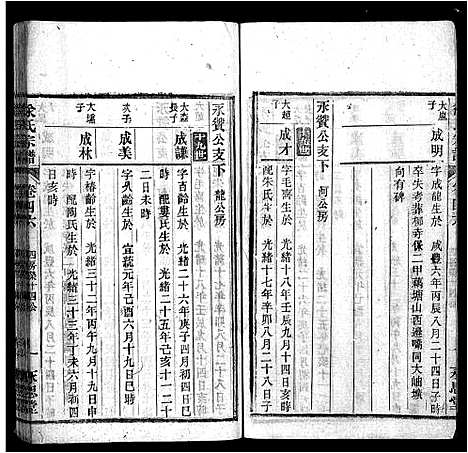 大嵐子
成明
字成龍生於 咸豐六年丙辰八月二十四日亥時
卒失考葬柳寺保二甲藕塘山西邊嘴同大岫塽
向有碑
永贊公支下 何公房
大超子
成才
字毛喜生於 光緒十八年壬辰九月十四日亥時
配朱氏生於 光緒十七年辛卯八月二十八日亥時
永贊公支下 龍公房
大森長子
成謙
字百齡生於 光緒二十六年庚子四月初四日巳時
配龔氏生於 光緒二十五年己亥十二月十
二日未時
次子
成美
字久齡生於 宣統元年己酉六月十九日巳時
大堛子
成林
字椿齡生於 光緒三十二年丙午九月十九日申時
配陶氏生於 光緒三十三年丁未六月初四
日亥時
余氏宗譜
卷四六
永思堂